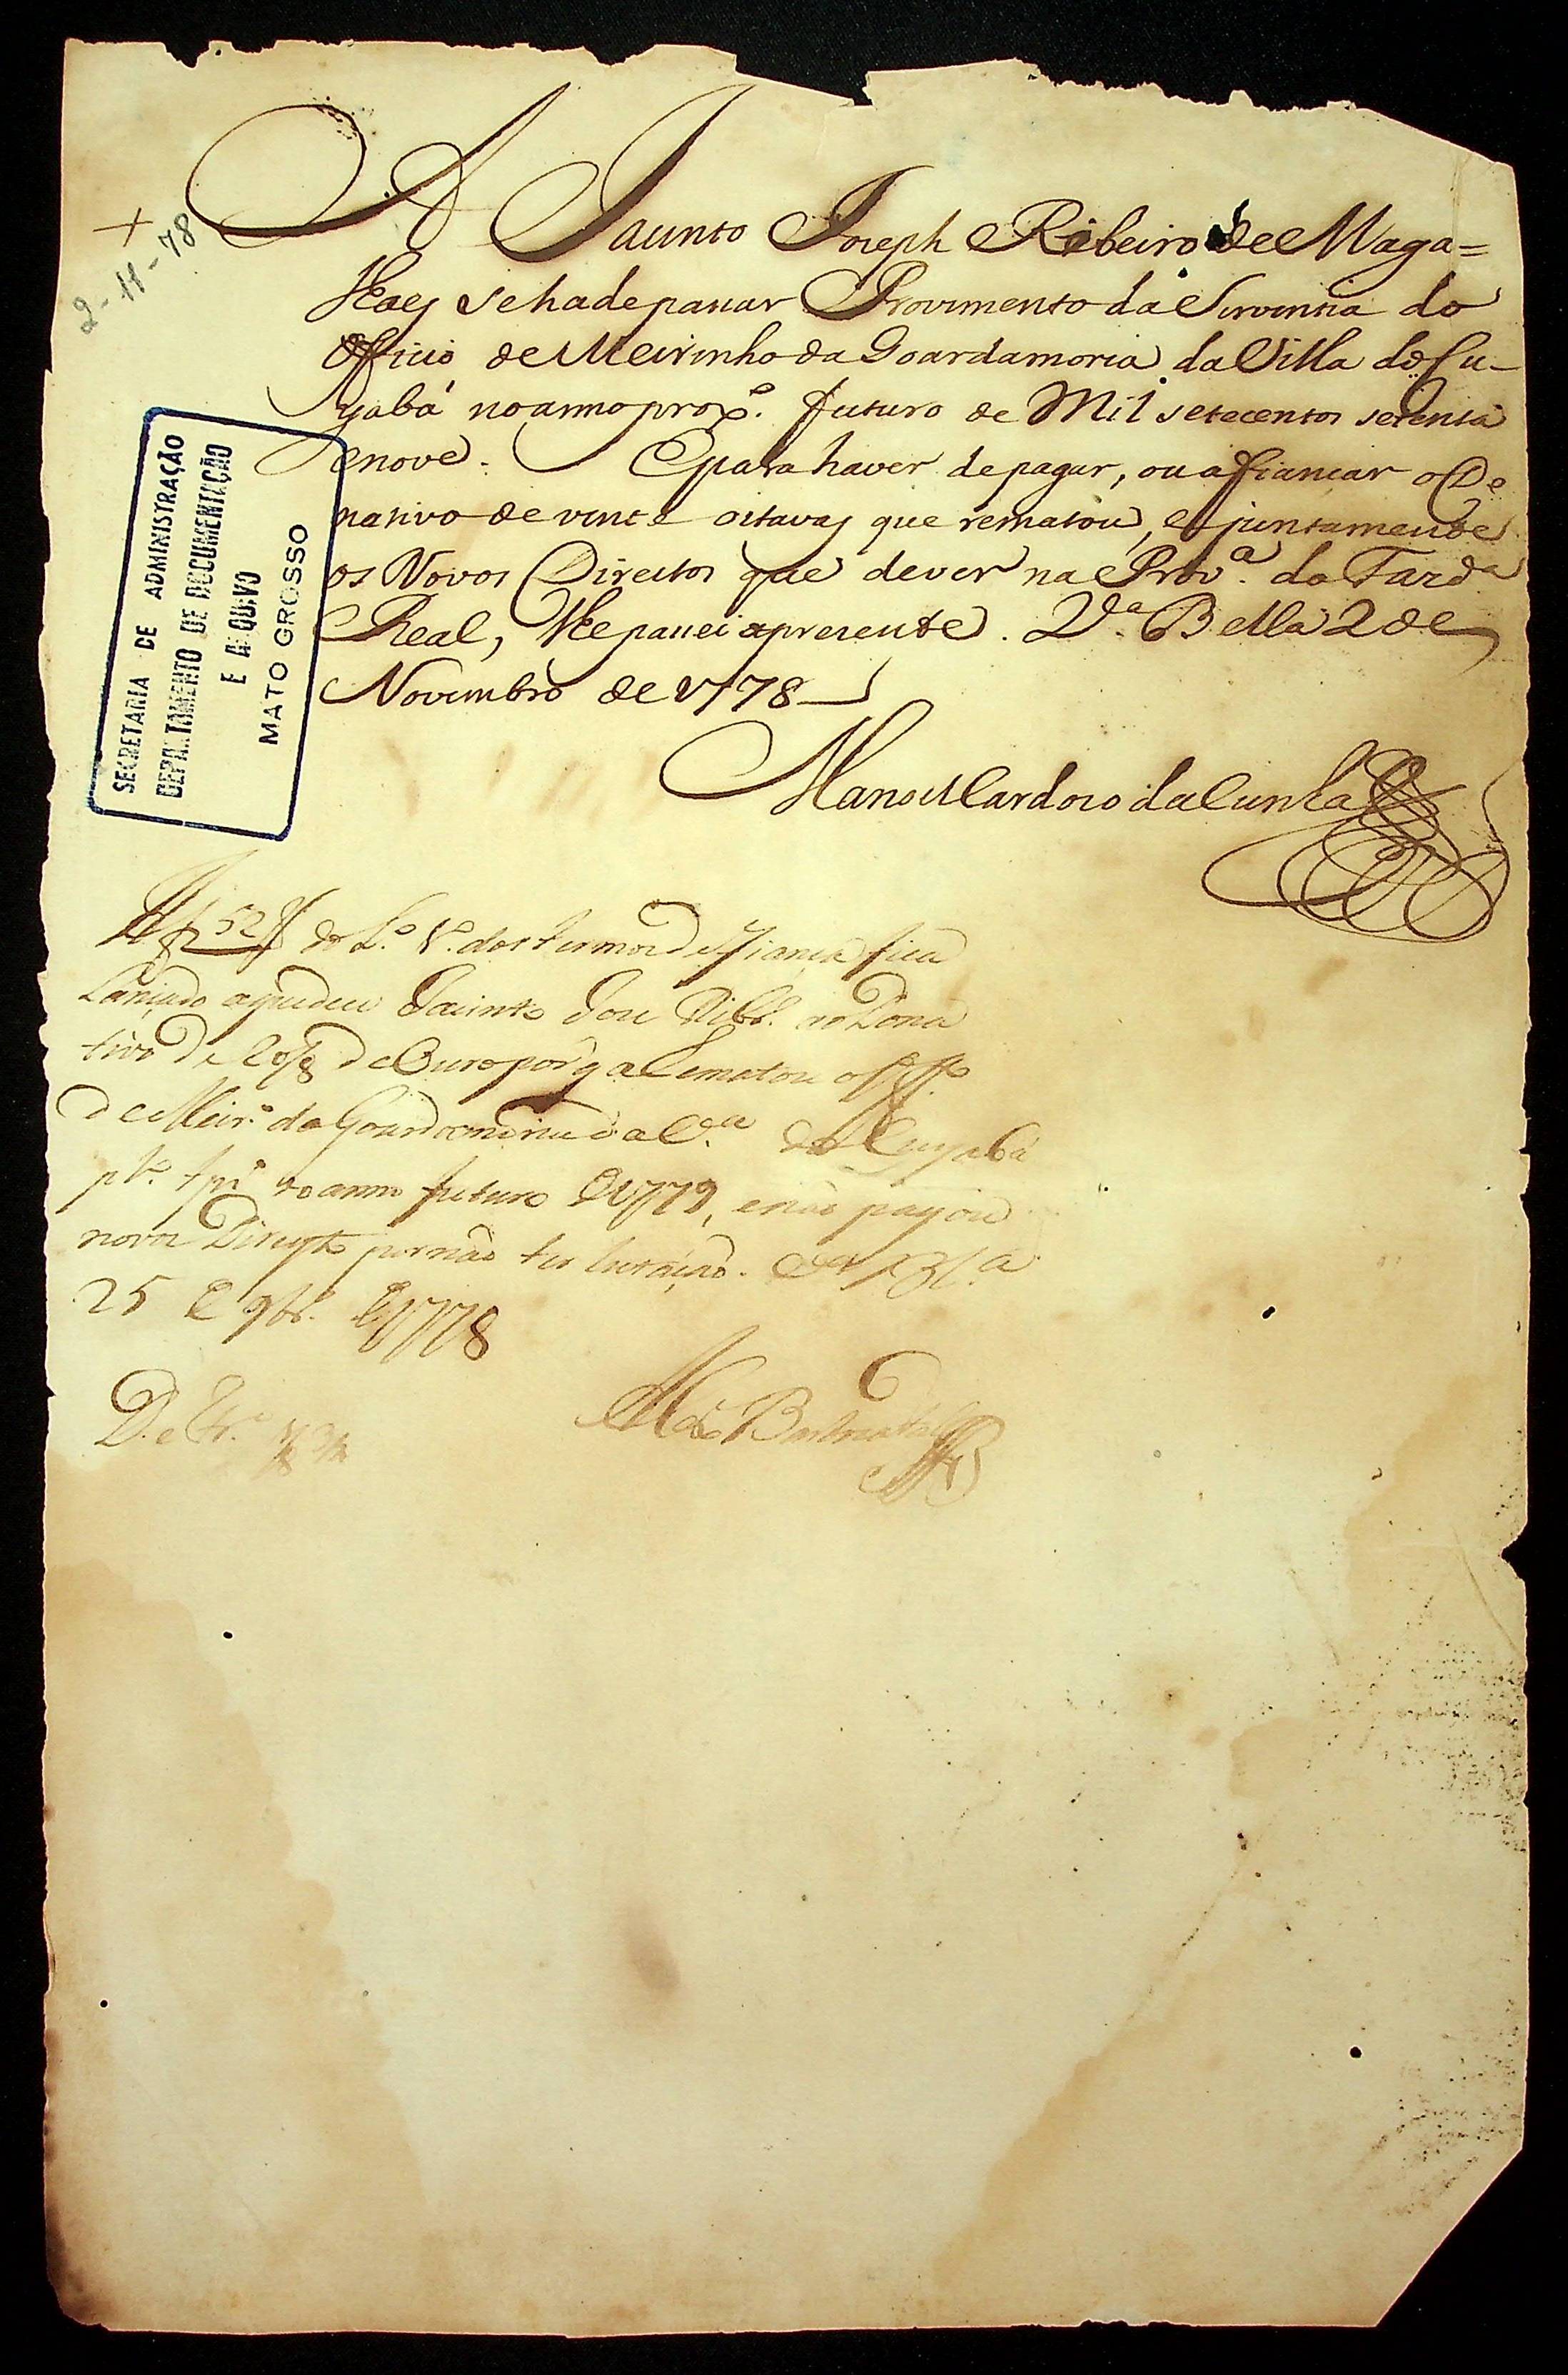 +
2-11-78
A Jacinto Joseph Ribeiro de Maga=
lhaes se hade passar Provimento da Serventia do
Officio de Meirinho da Goardamoria da Villa do Cu-
yabá no anno prox.º futuro de Mil setecentos setenta
enove. E para haver de pagar, ou afiançar o Do
nativo de vinte oitavas que rematou, e juntamente
os Novos Direitos que dever na Prov.ª da Fazd.ª
Real, lhe passei a presente. V.ª Bella 2 de
Novembro de 1778
Manoel Cardozo da Cunha
SECRETARIA DE ADMINISTRAÇÃO
DEPARTAMENTO DE DOCUMENTAÇÃO
E ARQUIVO
MATO GROSSO
A f 52 do L.º 1.º dos termos de fiança fica
Lançado a que deu Jacinto Joze Ribr.º ao Dona
tivo de 20/8 de Ouro por q a Rematou o Off.º
de Meir.º da Goardamoria da V.ª do Cuyabá
p.lo tpº do anno futuro de 1779, e não pagou
novos Direytos por não ter lutação. V.ª B.ª
25 de 9br.º de 1778